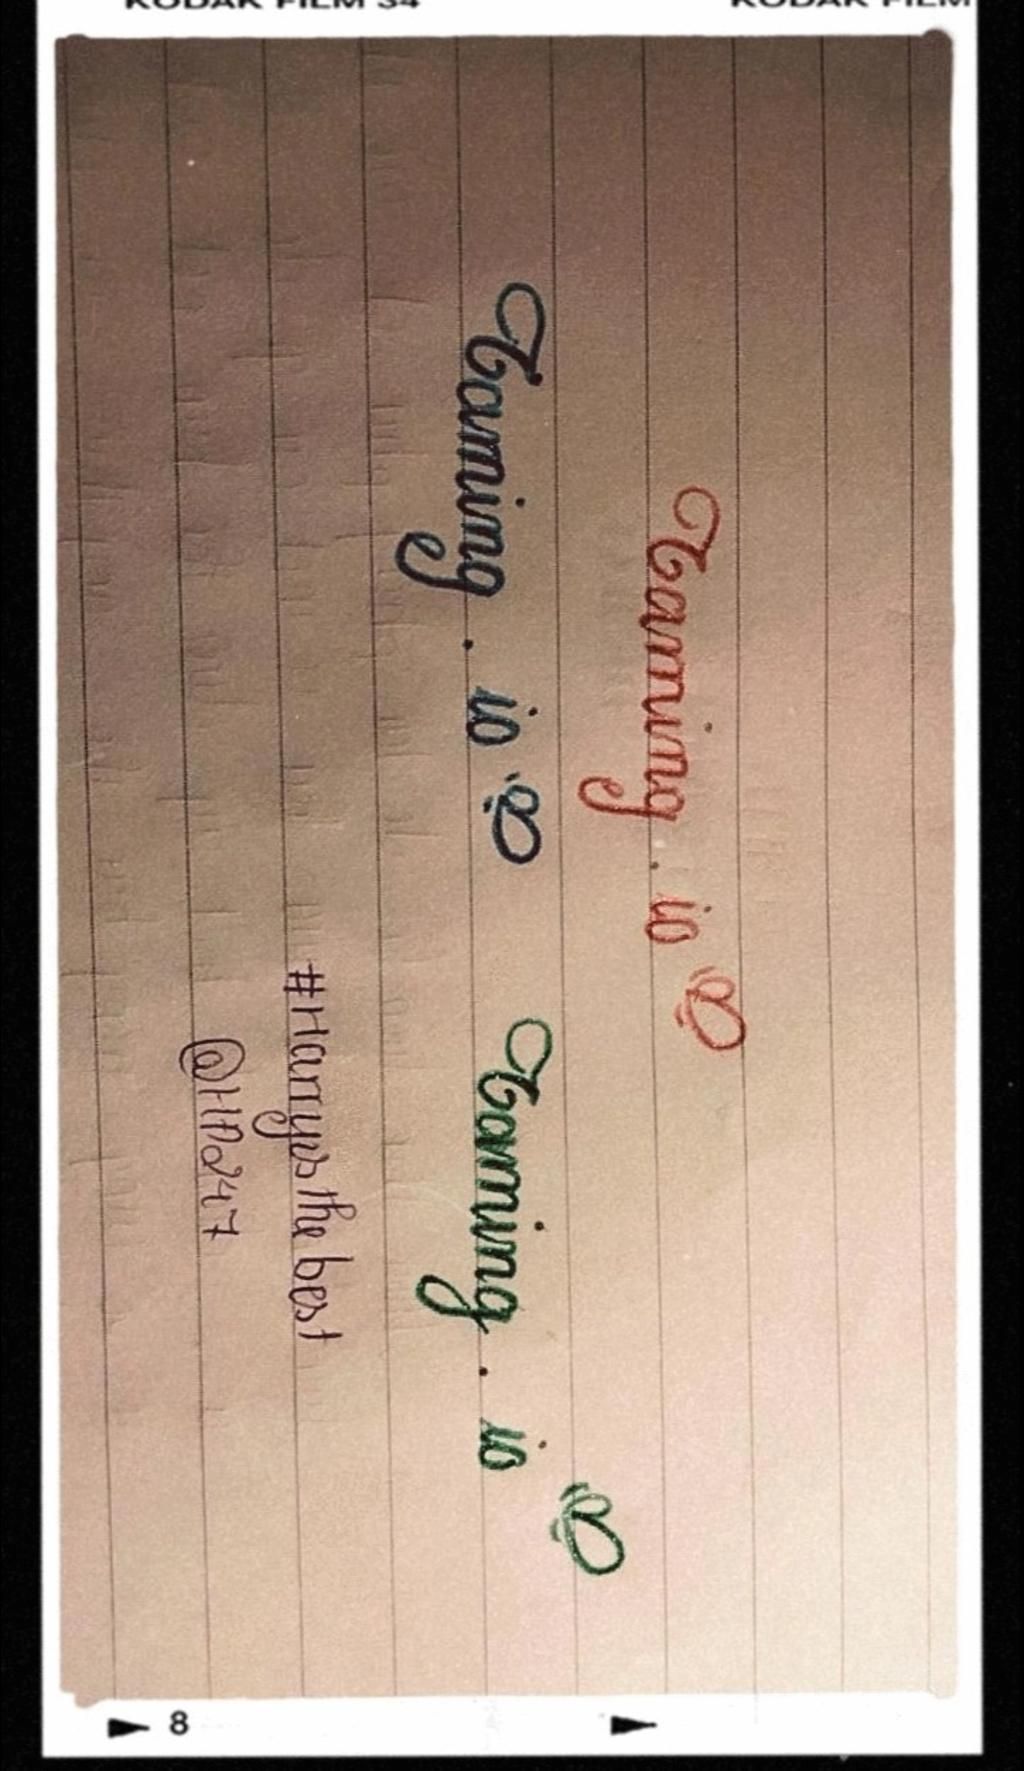 KODAK FILM 34
KODAK FILM
Taming.io
Taming.io
Taming.io
#Harrysthebest
8